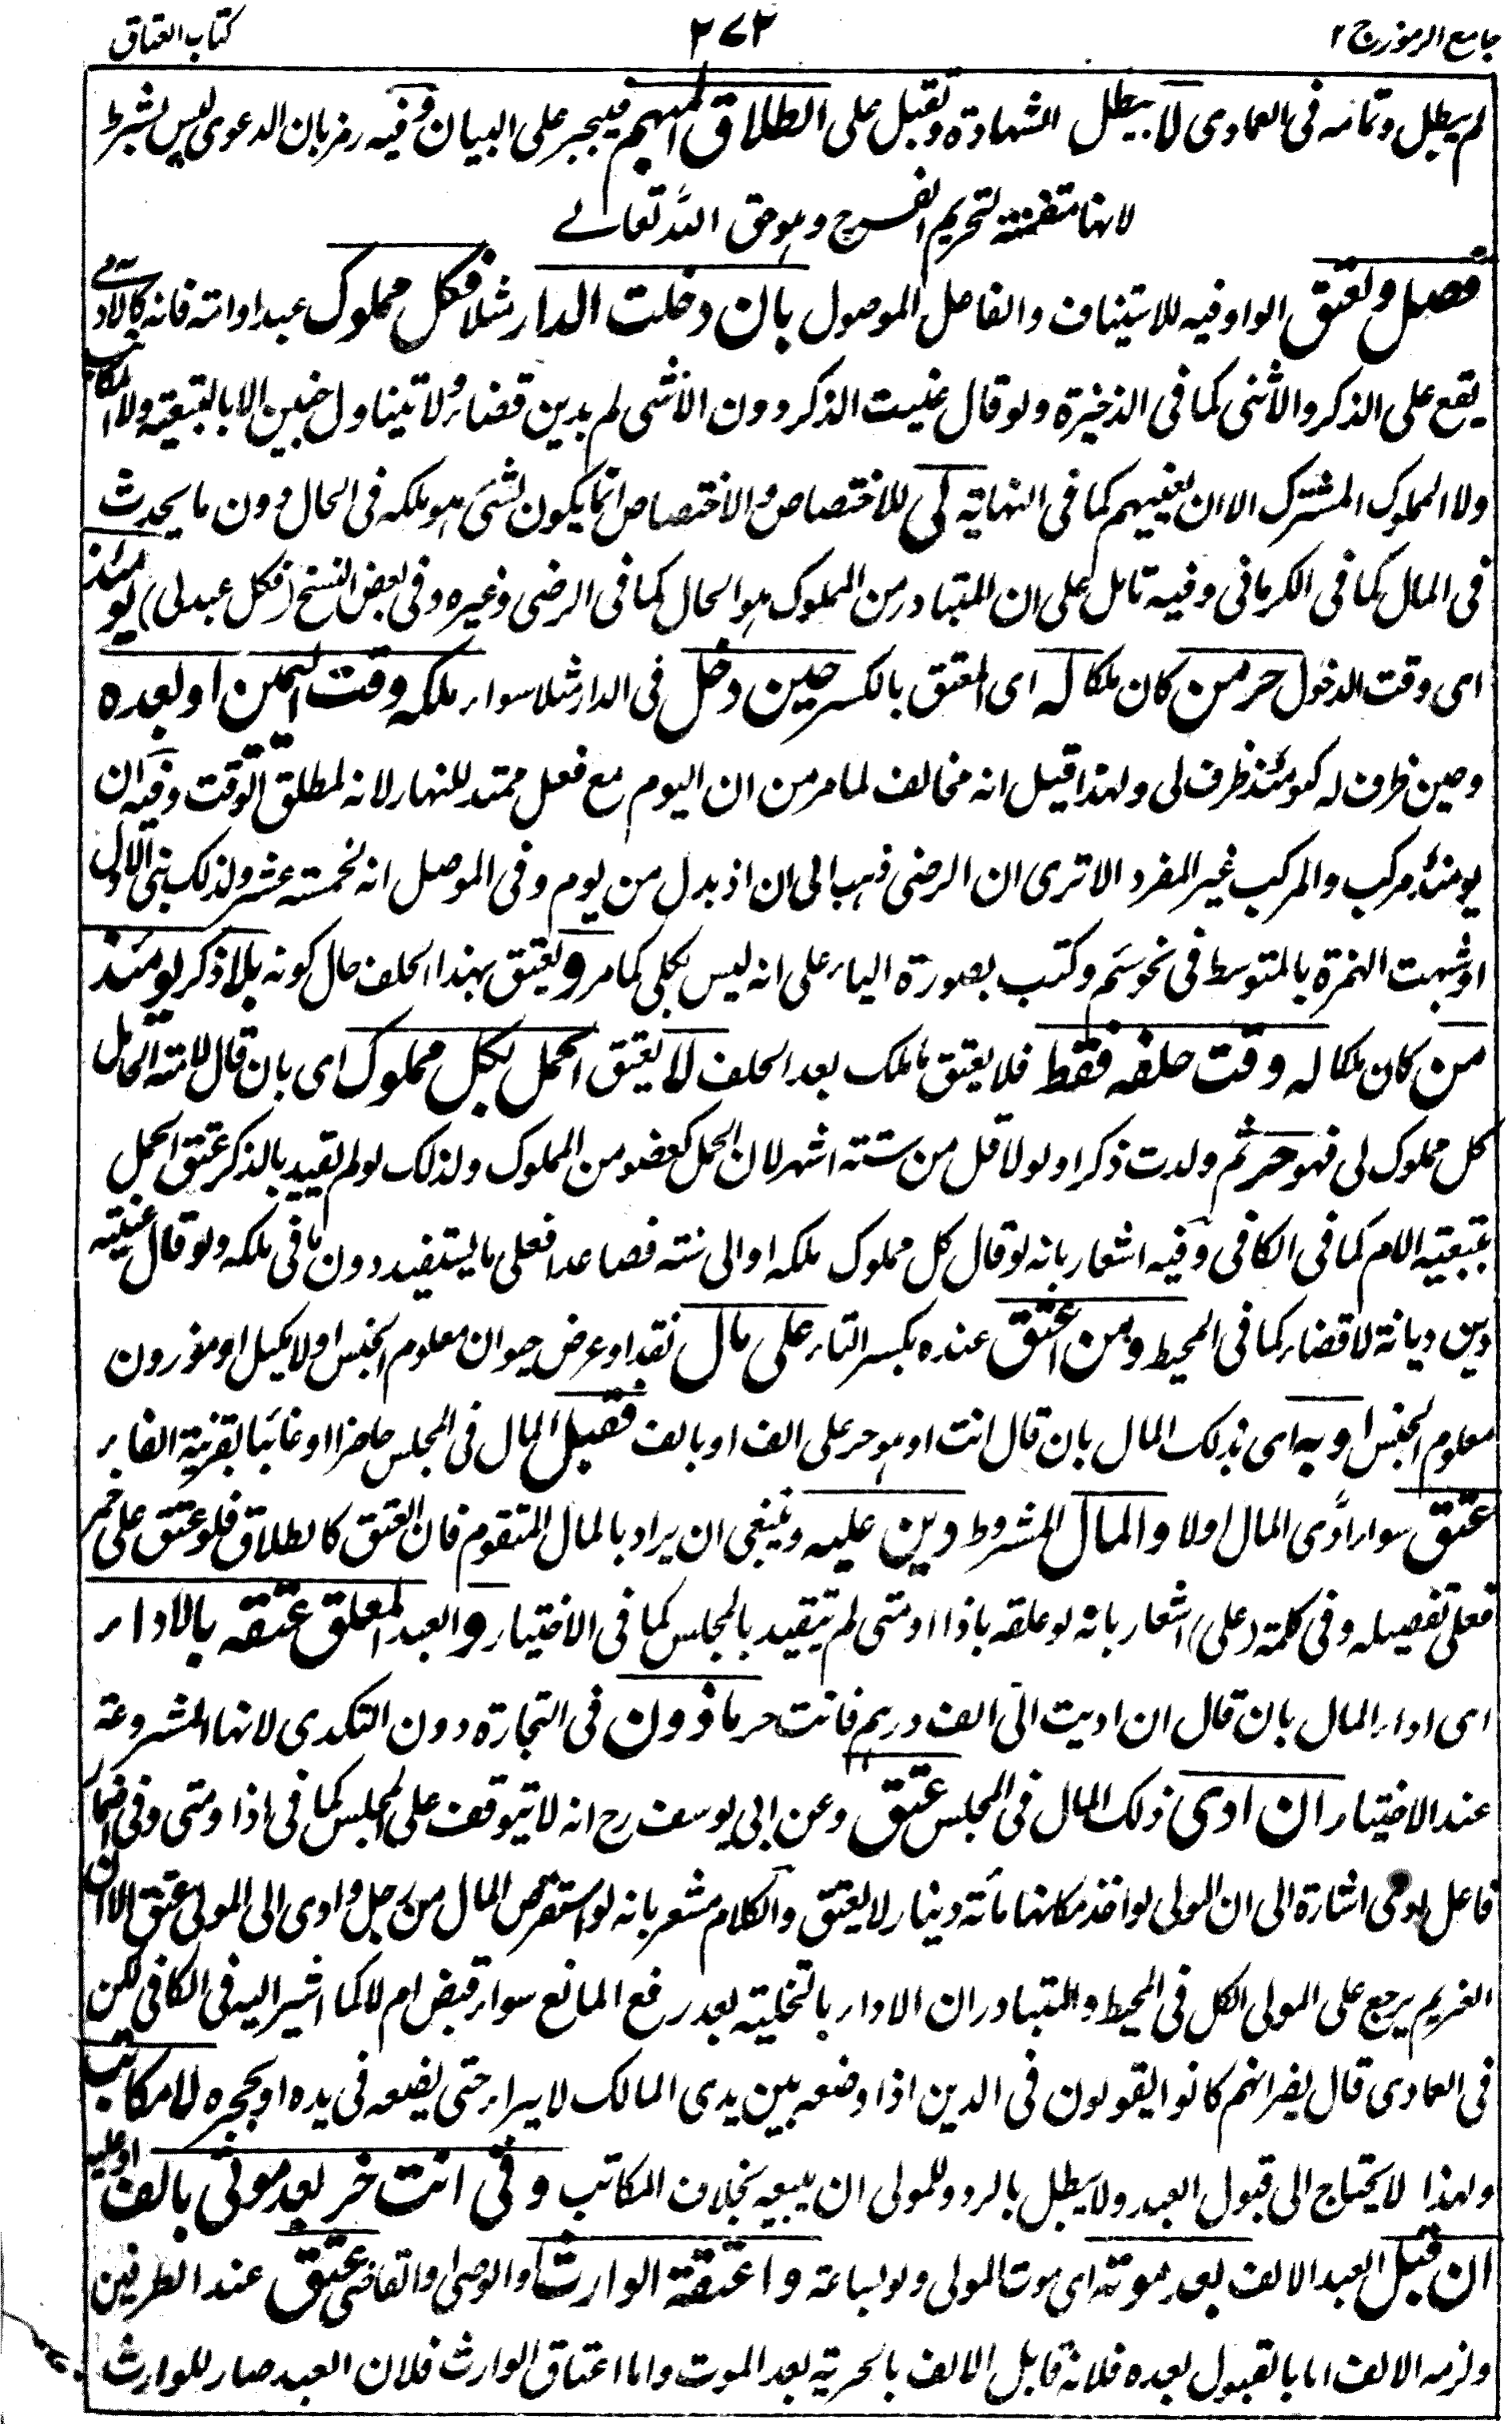 جامع الرموز ج ٢
٢٧٢
كتاب العتاق
لم يبطل وتمامه فى العمادى لا يبطل الشهادة وتقبل على الطلاق المبهم فيجبر على البيان وفيه رمز بان الدعوى ليس بشرط
لانها متضمنة لتحريم الفرج وهو حق الله تعالے
فصل ويعتق الواو فيه للاستيناف والفاصل الموصول بان دخلت الدار مثلا فكل مملوك عبدا وامة فانه كالآدمے
يقع على الذكر والانثى كما فى الذخيرة ولو قال عنيت الذكر دون الانثى لم يدين قضاء ولا يتناول الجنين الا بالتبعية ولا المكاتب
ولا المملوك المشترك الا ان يعنيهم كما فى النهاية لى للاختصاص والاختصاص انما يكون لشئ هو ملكه فى الحال دون ما يحدث
فى المال كما فى الكرمانى وفيه تامل على ان المتبادر من المملوك هو الحال كما فى الرضى وغيره وفى بعض النسخ (فكل عبد لى) يومئذ
اى وقت الدخول حر من كان ملكا له اى المعتق بالكسر حين دخل فى الدار مثلا سواء ملكه وقت اليمين او بعده
وحين ظرف له كيومئذ ظرف لى ولهذا قيل انه مخالف لما مر من ان اليوم مع فعل ممتد للنهار لانه لمطلق الوقت وفيه ان
يومئذ مركب والمركب غير المفرد الا ترى ان الرضى ذهب الى ان اذ بدل من يوم وفى الموصل انه لخمسة عشر ولذلك بنى الاول
او شبهت الهمزة بالمتوسط فى نحو سئم وكتب بصورة الياء على انه ليس بكلى كما مر ويعتق بهذا الحلف حال كونه بلا ذكر يومئذ
من كان ملكا له وقت حلفه فقط فلا يعتق ما ملك بعد الحلف لا يعتق الحمل بكل مملوك اى بان قال لامته الحامل
كل مملوك لى فهو حر ثم ولدت ذكرا ولو لاقل من ستة اشهر لان الحمل كعضو من المملوك ولذلك لو لم يقيد بالذكر عتق الحمل
بتبعية الام كما فى الكافى وفيه اشعار بانه لو قال كل مملوك ملكه او الى سنة فصاعدا فعلى ما يستفيد دون ما فى ملكه ولو قال عنيته
دين ديانة لا قضاء كما فى المحيط ومن اعتق عنده بكسر التاء على مال نقد او عرض حيوان معلوم الجنس او لا مكيل او موزون
معلوم الجنس او به اى بذلك المال بان قال انت او هو حر على الف او بالف فقبل المال فى المجلس حاضرا او غائبا بقرينة الفاء
عتق سواء ادى المال اولا والمال المشروط دين عليه وينبغى ان يراد بالمال المتقوم فان العتق كالطلاق فلو عتق على خمر
فعلى تفصيله وفى كلمة (على) اشعار بانه لو علقه باذا او متى لم يتقيد بالمجلس كما فى الاختيار والعبد المعلق عتقه بالاداء
اى اداء المال بان قال ان اديت الى الف درهم فانت حر ماذون فى التجارة دون التكدى لانها المشروعة
عند الاختيار ان ادى ذلك المال فى المجلس عتق وعن ابى يوسف رح انه لا يتوقف على المجلس كما فى اذا ومتى وفى اضمار
فاعل ادى اشارة الى ان المولى لو اخذ مكانها مأة دينار لا يعتق والكلام مشعر بانه لو استقرض المال من رجل وادى الى المولى عتق الا ان
الغريم يرجع على المولى الكل فى المحيط والمتبادر ان الاداء بالتخلية بعد رفع المانع سواء قبض ام لا كما اشير اليه فى الكافى لكن
فى العمادى قال نضر انهم كانوا يقولون فى الدين اذا وضعه بين يدى المالك لا يبراء حتى يضعه فى يده او بحجره لا مكاتب
ولهذا لا يحتاج الى قبول العبد ولا يبطل بالرد وللمولى ان يبيعه بخلاف المكاتب وفى انت حر بعد موتى بالف او عليه
ان قبل العبد الالف بعد موته اى موت المولى ولو بساعة واعتقة الوارث او الوصى او القاضى عتق عند الطرفين
ولزمه الالف اما بالقبول بعده فلانه قابل الالف بالحرية بعد الموت واما اعتاق الوارث فلان العبد صار للوارث